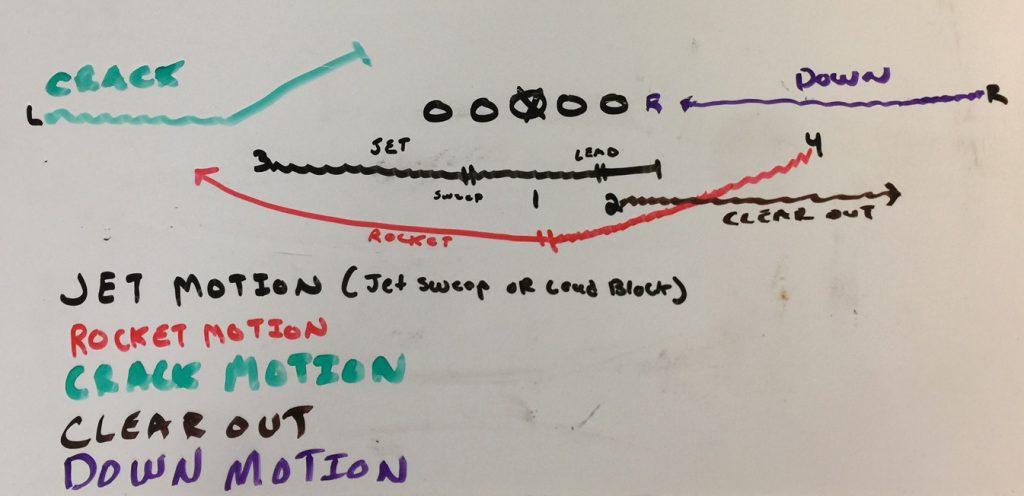 CRACK
DOWN
L
R
R
JET
LEAD
3
4
SWEEP
1
2
CLEAR OUT
ROCKET
JET MOTION (Jet Sweep OR Lead Block)
ROCKET MOTION
CRACK MOTION
CLEAR OUT
DOWN MOTION